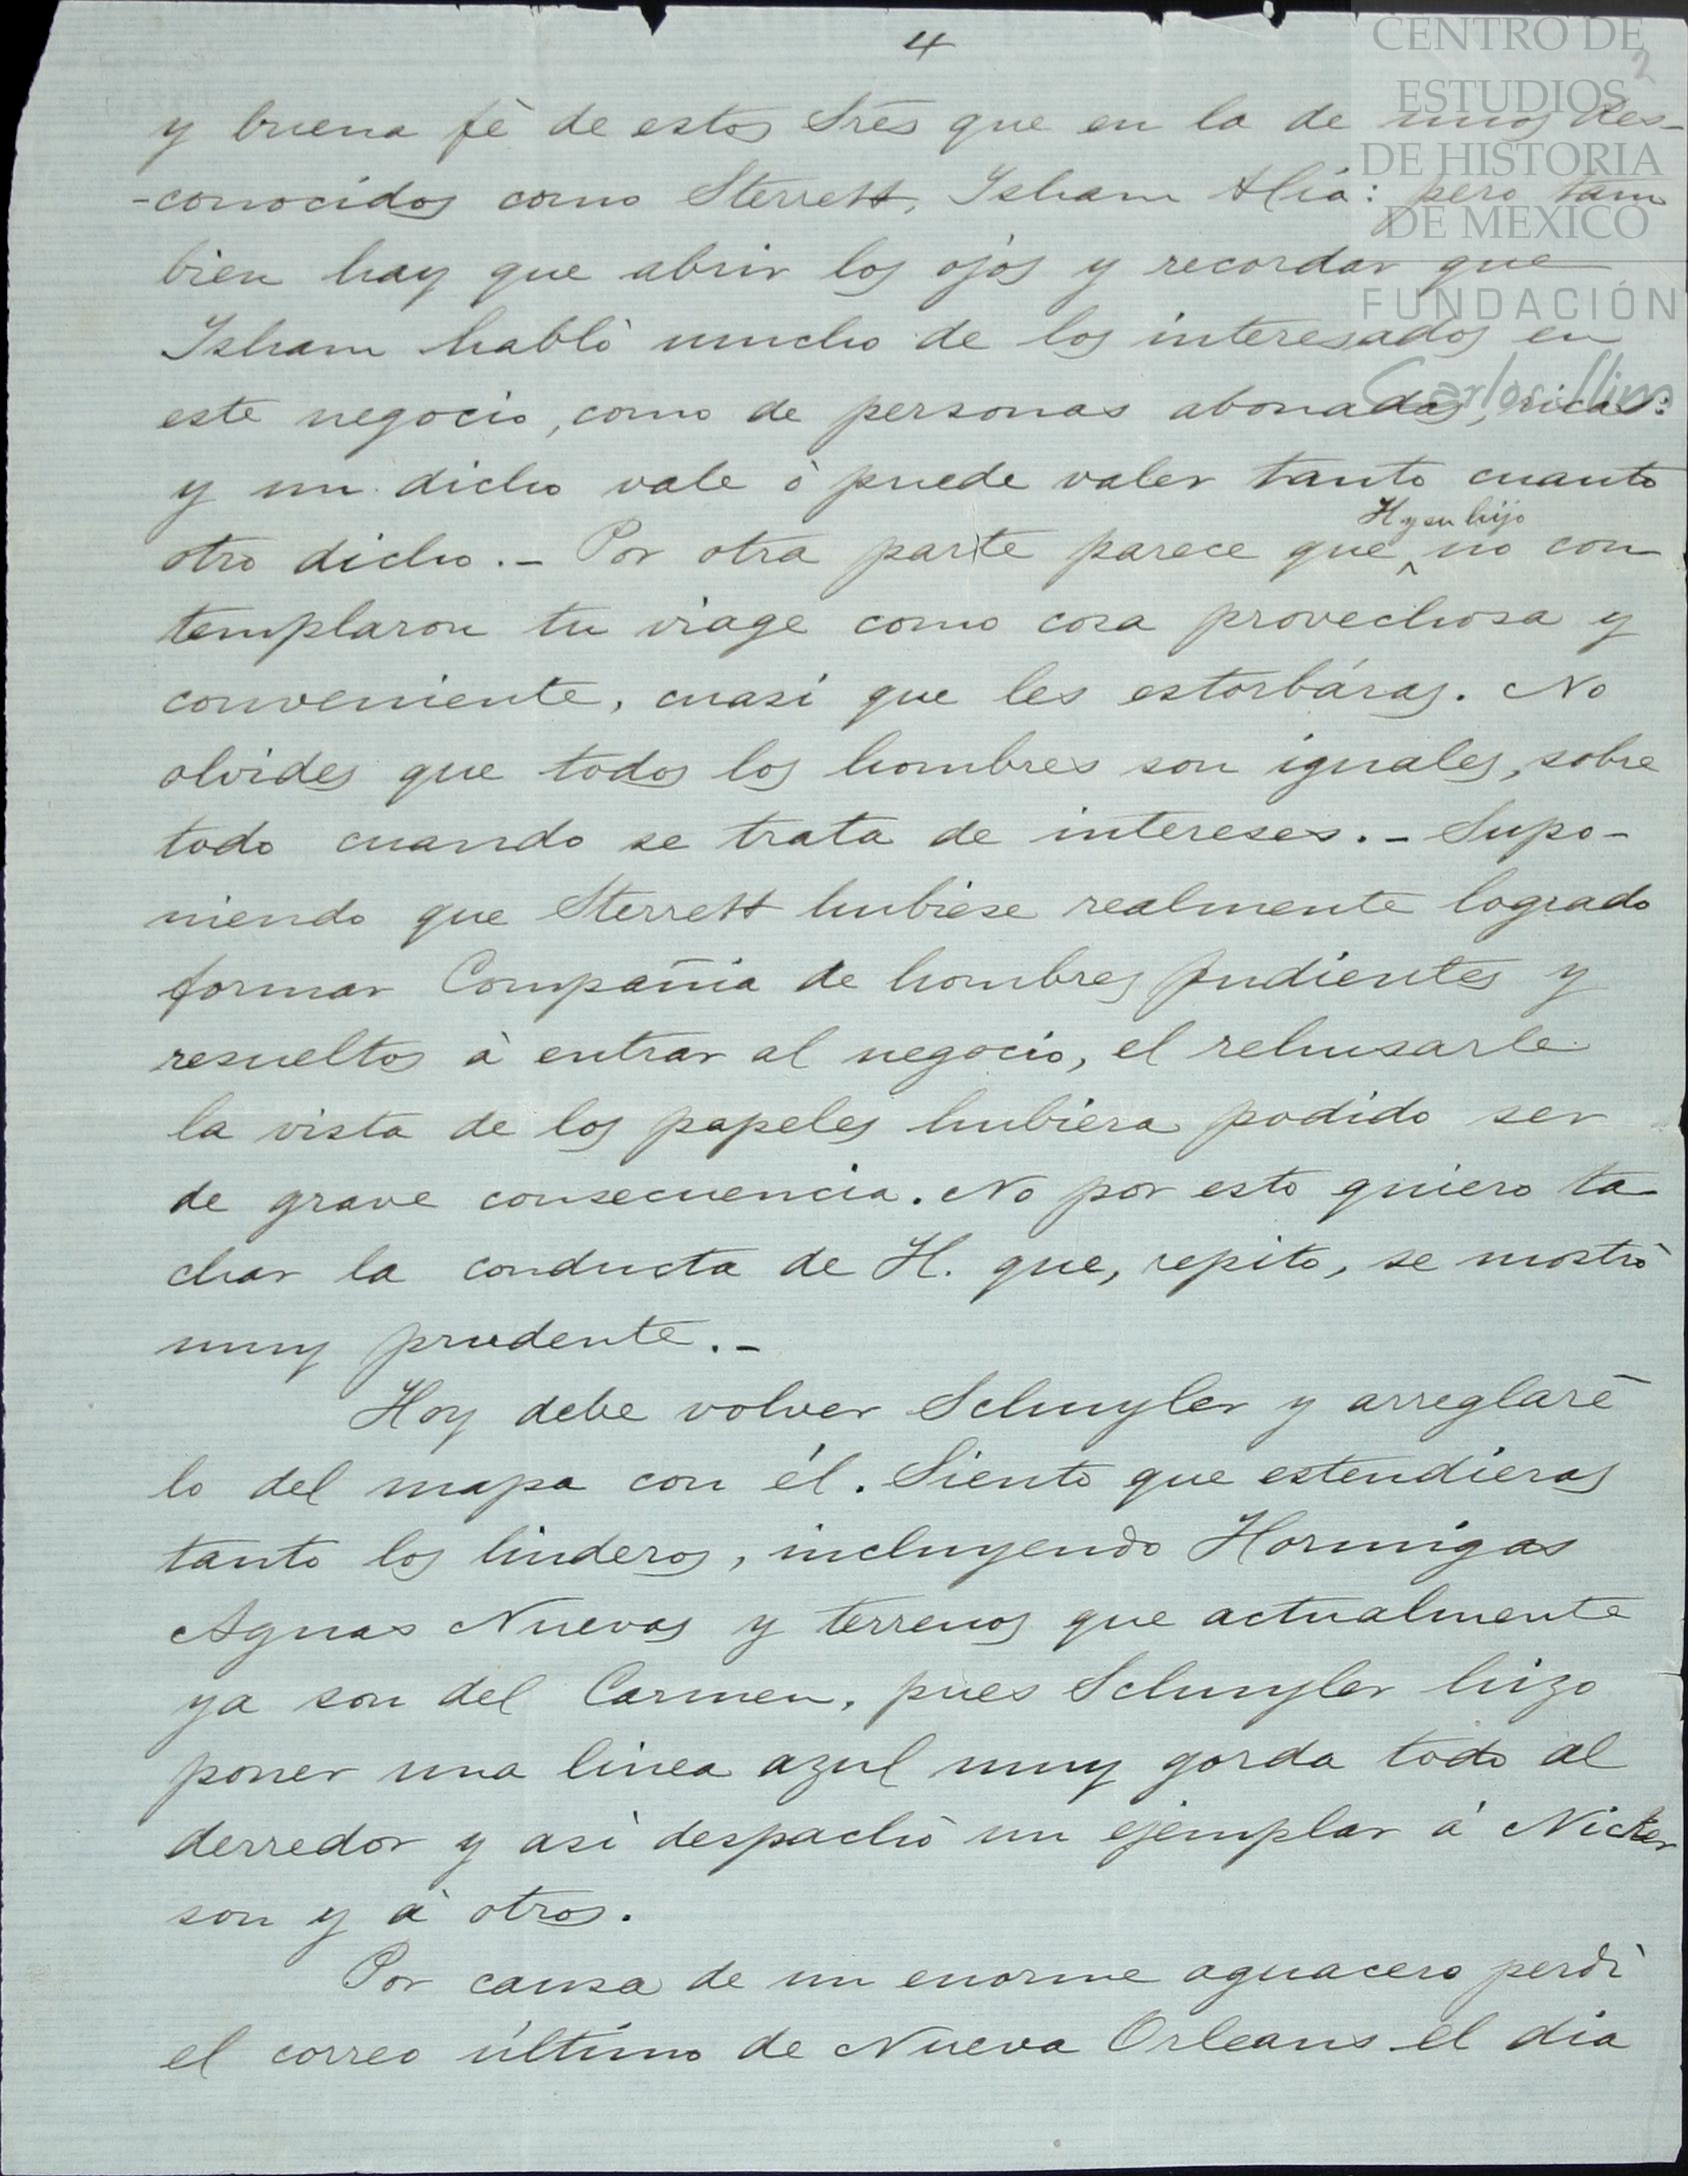 4
CENTRO DE
ESTUDIOS
DE HISTORIA
DE MEXICO
FUNDACIÓN
Carlos Slim
2
y buena fè de estos Sres que en la de unos des-
-conocidos como Sterrett, Isham &Cia: pero tam
bien hay que abrir los ojos y recordar que
Isham habló mucho de los interesados en
este negocio, como de personas abonadas, ricas:
y un dicho vale ò puede valer tanto cuanto
otro dicho.- Por otra parte parece que H y su hijo no con
templaron tu viage como cosa provechosa y
conveniente, cuasi que les estorbáras. No
olvides que todos los hombres son iguales, sobre
todo cuando se trata de intereses.- Supo-
niendo que Sterrett hubiese realmente logrado
formar Compañia de hombres pudientes y
resueltos à entrar al negocio, el rehusarle
la vista de los papeles hubiera podido ser
de grave consecuencia. No por esto quiero ta
char la conducta de H. que, repito, se mostrò
muy prudente.-
Hoy debe volver Schuyler y arreglaré
lo del mapa con él. Siento que estendieras
tanto los linderos, incluyendo Hormigas
Aguas Nuevas y terrenos que actualmente
ya son del Carmen, pues Schuyler hizo
poner una linea azul muy gorda todo al
derredor y asì despachò un ejemplar á Nicker
son y à otros.
Por causa de un enorme aguacero perdì
el correo último de Nueva Orleans el dia